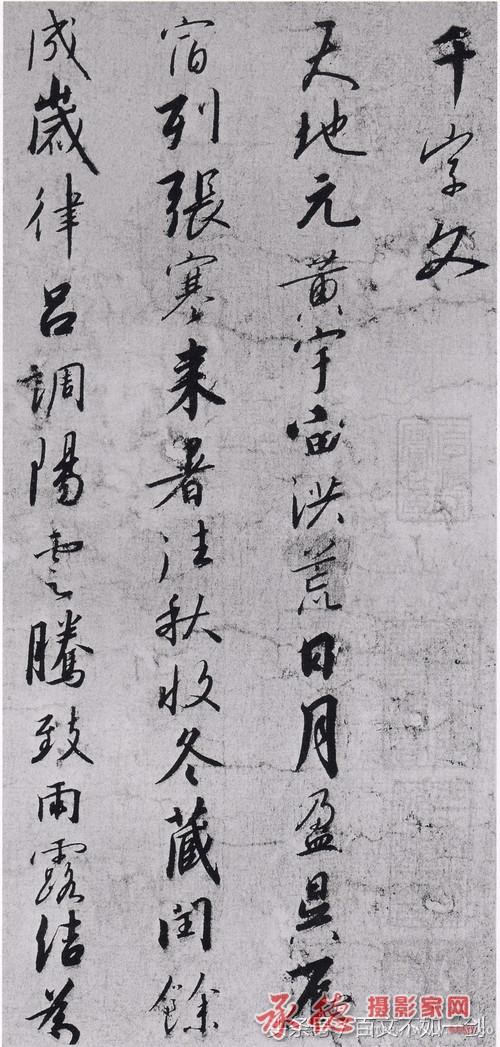 千字文
天地元黄宇宙洪荒日月盈昃辰
宿列張寒来暑往秋收冬藏閏餘
成歲律吕調陽雲騰致雨露结為
承德摄影家网